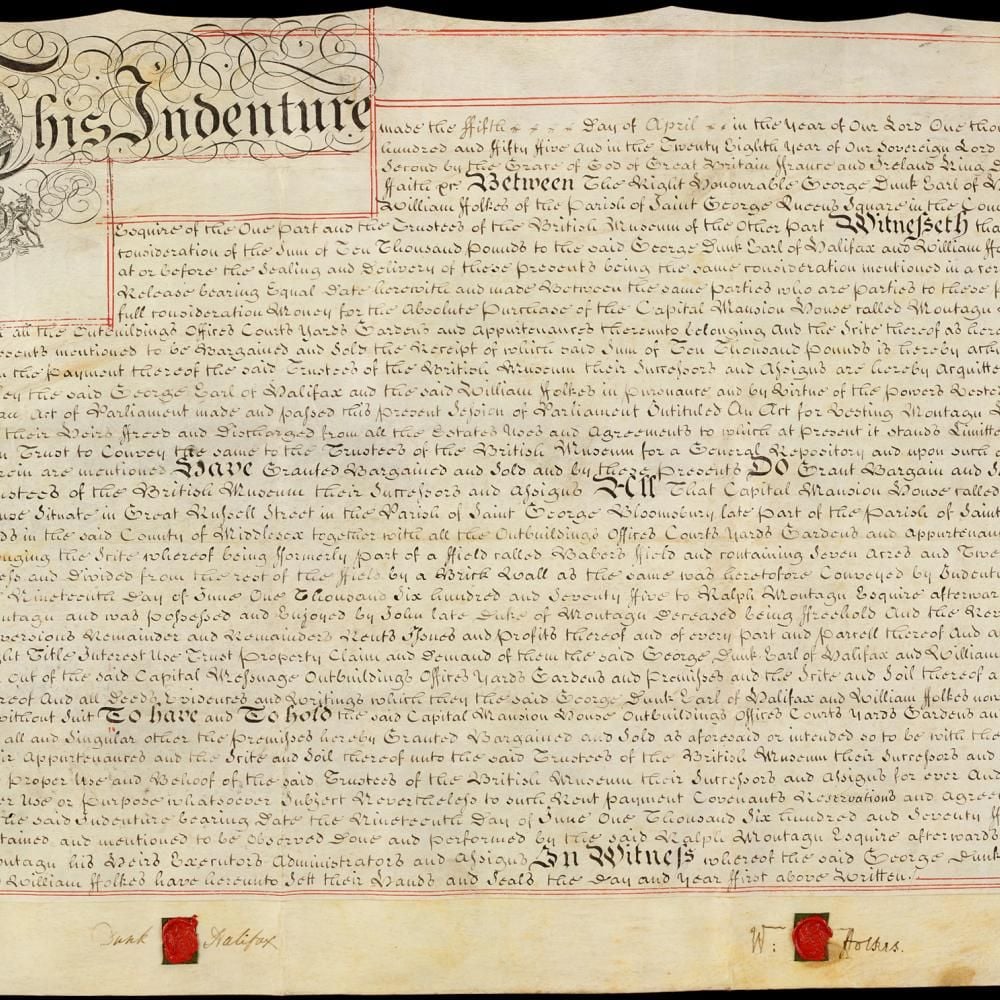 This Indenture
made the ffifth Day of April in the Year of Our Lord One
hundred and ffifty ffive And in the Twenty Eighth Year of Our Sovereign Lord
Second by the Grace of God of Great Britain ffrance and Ireland King
ffaith &c Between The Right Honourable George Dunk Earl of
William ffolkes of the Parish of Saint George Queens Square in the
Esquire of the One Part and the Trustees of the British Museum of the Other Part Witnesseth
consideration of the Sum of Ten Thousand Pounds to the said George Dunk Earl of Halifax and William
at or before the Sealing and Delivery of these Presents being the same consideration mentioned in a
Release bearing Equal Date herewith and made Between the same parties who are parties to these
full consideration Money for the Absolute Purchase of the Capital Mansion House called Montagu
all the Outbuildings Offices Courts Yards Gardens and Appurtenances thereunto belonging And the Scite thereof as
mentioned to be Bargained and Sold the Receipt of which said Sum of Ten Thousand pounds is hereby
the Payment thereof the said Trustees of the British Museum their Successors and Assigns are hereby
the said George Earl of Halifax and the said William ffolkes in pursuance and by Virtue of the Powers
Act of Parliament made and passed this present Session of Parliament Intituled An Act for Vesting Montagu
their Heirs ffreed and Discharged from all the Estates Uses and Agreements to which at present it stands
Trust to Convey the same to the Trustees of the British Museum for a General Repository and upon such
are mentioned Have Granted Bargained and Sold and by these Presents Do Grant Bargain and
of the British Museum their Successors and Assigns All That Capital Mansion House called
Situate in Great Russell Street in the Parish of Saint George Bloomsbury late Part of the Parish of Saint
in the said County of Middlesex together with all the Outbuildings Offices Courts Yards Gardens and
the Scite whereof being fformerly part of a ffield called Babers ffield and containing Seven Acres and
and Divided from the rest of the ffield by a Brick Wall as the same was heretofore Conveyed by
Nineteenth Day of June One Thousand Six hundred and Seventy ffive to Ralph Montagu Esquire
and was possessed and Enjoyed by John late Duke of Montagu Deceased being ffreehold And the
Remainder and Remainders Rents Issues and Profits thereof and of every Part and Parcell thereof And
Title Interest Use Trust Property Claim and Demand of them the said George Dunk Earl of Halifax and William
out of the said Capital Messuage Outbuildings Offices Yards Gardens and Premisses and the Scite and Soil thereof
And all Deeds Evidences and Writings which they the said George Dunk Earl of Halifax and William ffolkes
without Suit To have and To hold the said Capital Mansion House Outbuildings Offices Courts Yards Gardens
all and Singular other the Premisses hereby Granted Bargained and Sold as aforesaid or intended so to be with
Appurtenances and the Scite and Soil thereof unto the said Trustees of the British Museum their Successors and
Proper Use and Behoof of the said Trustees of the British Museum their Successors and Assigns for ever And
Use or Purpose whatsoever Subject Nevertheless to such Rent payment Covenants Reservations and
the said Indenture bearing Date the Nineteenth Day of June One Thousand Six hundred and Seventy
and mentioned to be Observed Done and performed by the said Ralph Montagu Esquire afterwards
his Heirs Executors Administrators and Assigns In Witness whereof the said George Dunk
William ffolkes have hereunto Sett their Hands and Seals the Day and Year ffirst above Written.
Dunk Halifax
W: ffolkes.